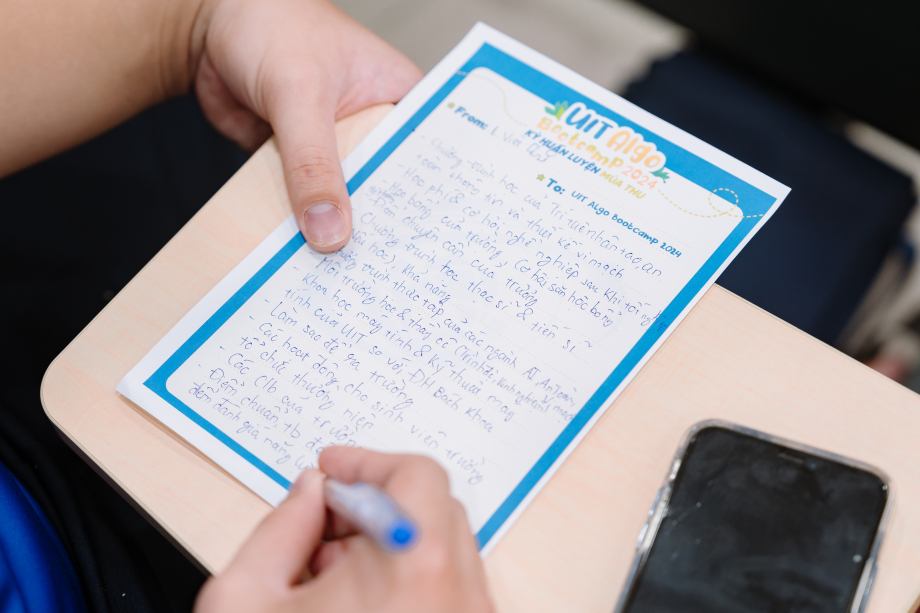 UIT Algo
Bootcamp 2024
KỲ HUẤN LUYỆN MÙA THU
From:
To: UIT Algo Bootcamp 2024
- Chương trình học của Trí tuệ nhân tạo, an
toàn thông tin và thiết kế vi mạch
- Học phí & cơ hội nghề nghiệp sau khi tốt nghiệp
- Học bổng của trường, cơ hội săn học bổng
chuyên cần của trường
- Chương trình học thạc sĩ & tiến sĩ
học, khả năng
- Chương trình thực tập của các ngành AI, An toàn, vi mạch
- Môi trường học & thân cô (Trình độ, kinh nghiệm)
- Khoa học máy tính & kỹ thuật máy
tính của UIT so với ĐH Bách Khoa
- Làm sao để ra trường
- Các hoạt động cho sinh viên trường
tổ chức thường niên
- Các clb của trường
- Điểm chuẩn, tb
điểm đánh giá năng lực